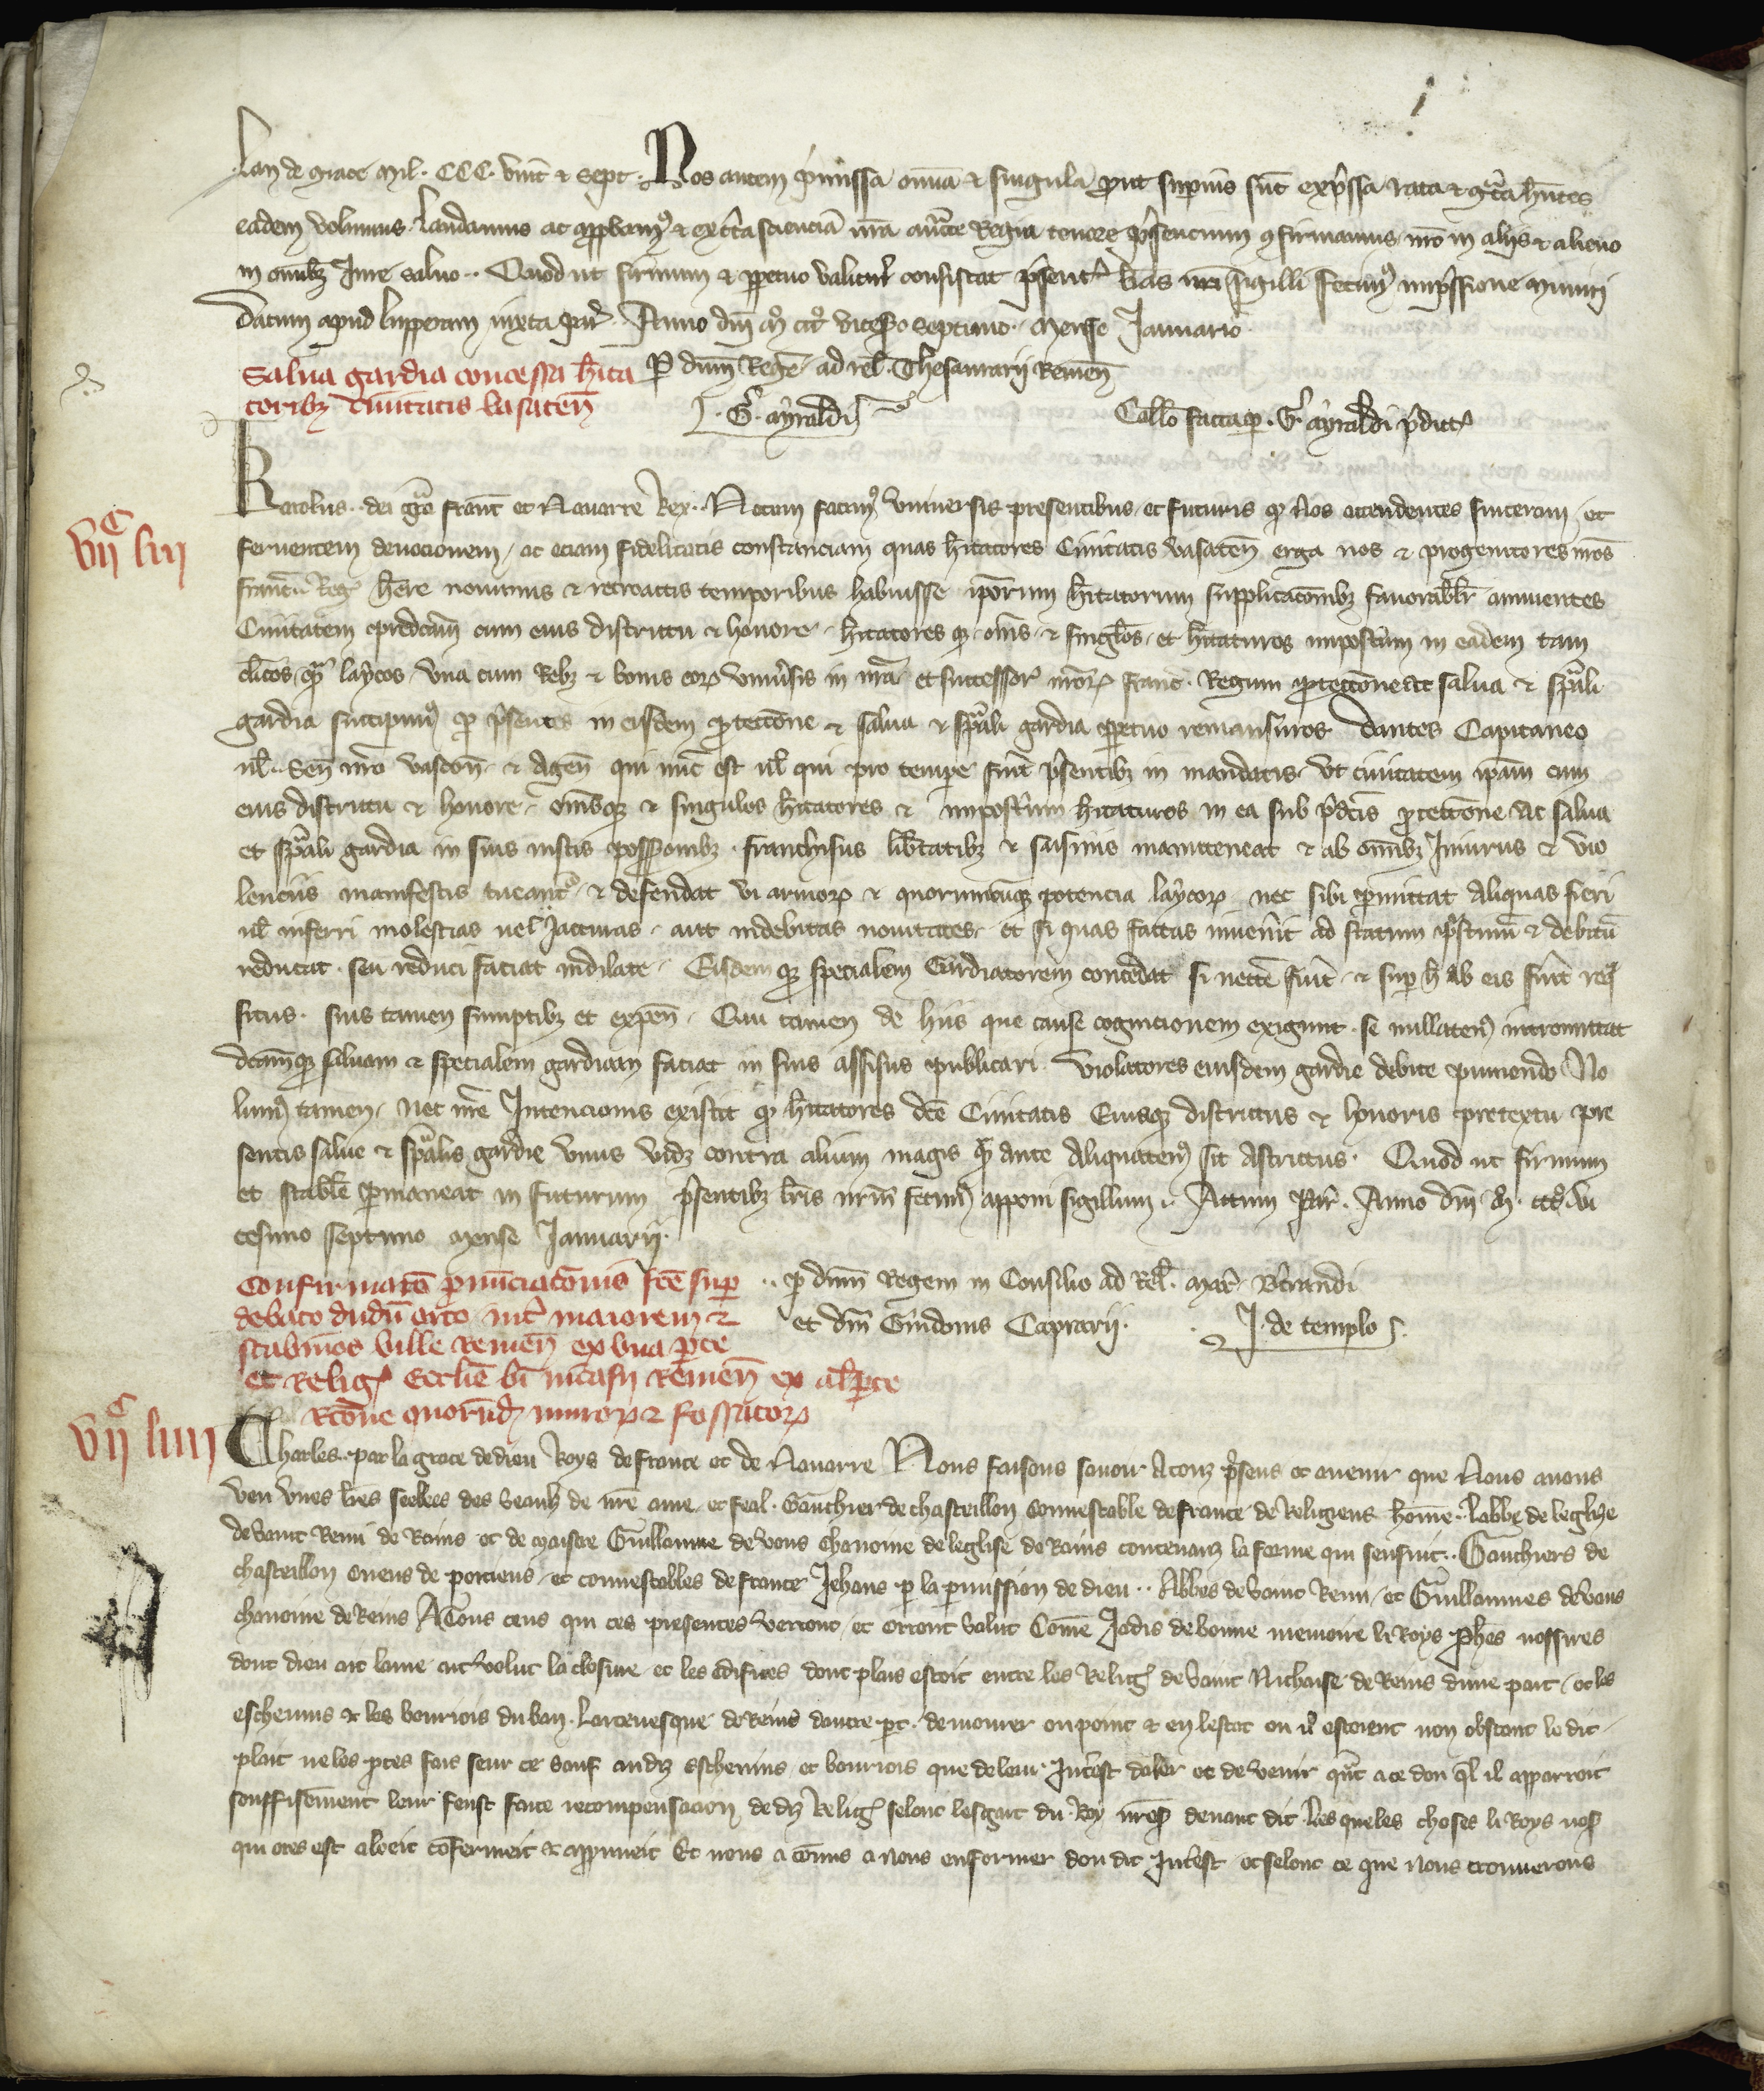 Lan de grace mil. CCC. vint & sept. Nos autem p̄missa om̄ia & singula prout sup̄ius sūt exp̄ssa rata & g̃ta h̄ntes
eadem volumus laudamus ac app̄bam⁹ & ex c̄ta sciencia n̄ra auct̄te Regia tenore p̄sencium ꝯfirmamus n̄ro in aliis & alieno
in om̄ibꝫ Jure salvo. Quod ut firmum & p̱petuo valitur̄ consistat p̄sent̄ l̄ras n̄ri sigilli fecim⁹ imp̄ssione muniri
Datum apud Lupperam iuxta par̄. Anno dn̄i m̊ ccc̊ vicesīo septimo. Mense Januario
Salva gardia concessa h̄ita
toribꝫ civitatis Vasaten̄
P̱ dn̄m Regē ad rel̄. Thesaurarii Remen̄
J. G̃. ayraldi
Coll̄o facta p̱ G̃. ayraldi p̄dict̄
vii C liii
Karolus dei gr̄a franc̄ et Navarre Rex. Notum facim⁹ universis presentibus et futuris qꝫ Nos attendentes sinceram et
ferventem devocionem ac eciam fidelitatis constanciam quas h̄itatores Civitatis Vasaten̄ erga nos & progenitores n̄ros
franc̄ Reḡ h̄ere novimus & retroactis temporibus habuisse ip̄orum h̄itatorum supplicac̄oībꝫ favorabil̄r annuentes
Civitatem predc̄am cum eius districtu & honore h̄itatores qꝫ om̄s & singl̄os et h̄itaturos imposter̄um in eadem tam
cl̄icos q̄ʒ laycos una cum Rebꝫ & bonis eoꝝ univ̄sis in n̄ra et successor̄ n̄roꝝ franc̄ Regum p̱tecc̄one ac salva & sp̄ali
gardia suscipim⁹ p̱ p̄sentes in eisdem p̱tecc̄one & salva & sp̄ali gardia p̱petuo remansuros Dantes Capitaneo
ul̄ Sen̄ n̄ro vascon̄ & Agen̄ qui nūc est ul̄ qui pro tempe fuīt p̄sentibꝫ in mandatis ut civitatem ip̄am cum
eius districtu & honore om̄sqꝫ & singulos h̄itatores & imposter̄um h̄itaturos in ea sub p̄dc̄is p̱tecc̄one ac salva
et sp̄ali gardia in suis iustis possessioībꝫ franchisiis lib̄tatibꝫ & saisinis manuteneat & ab om̄ibꝫ Iniuriis & vio
lenciis manifestis tueat̄ & defendat vi armoꝝ & quorumcūqꝫ potencia laycoꝝ nec sibi p̱mittat aliquas fieri
ul̄ inferri molestias vel Jacturas aut indebitas novitates et si quas factas inven̄it ad statum p̄stinū & debitū
reducat seu reduci faciat indilate. Eisdem qꝫ specialem Gardiatorem concedat si necc̄e fuīt & sup̱ h̄ ab eis fuīt req̄
situs suis tamen sumptibꝫ et expen̄. Qui tamen de hiis que cause cognicionem exigunt se nullaten⁹ intromittat
dc̄amqꝫ salvam & specialem gardiam faciat in suis assisiis publicari violatores eiusdem gardie debite puniendo No
lum⁹ tamen nec n̄re Intencionis existit qꝫ h̄itatores dc̄e Civitatis Eiusqꝫ districtus & honoris pretextu pre
sentis salve & sp̄alis gardie unus vidꝫ contra alium magis q̄ʒ ante aliquaten⁹ sit astrictus. Quod ut firmum
et stabile p̱maneat in futurum p̄sentibꝫ l̄ris nr̄m fecim⁹ apponi sigillum. Actum par̄. Anno dn̄i m̊. ccc̊. vi
cesimo septimo mense Januarii.
Confirmatō p̄nūciatōnis fc̄e sup̱
debato dudū orto int̄ maiorem &
scabinos ville Remen̄ ex una p̱te
et Reliḡ Ecclīe bī Nicasii Remen̄ ex al̄ p̱te
Rōne quorūdꝫ muroꝝ & fossatoꝝ
p̱ dn̄m Regem in Consilio ad Rel̄. Mar̄. B̄trandi
et dn̄i Guidonis Caprarii.
J. de templo
vii C liiii
Charles par la grace de dieu Roys de france et de Navarre Nous faisons savoir A touz p̄sens et avenir que Nous avons
veu unes l̄res seelees des seaulz de nr̄e ame et feal Gauchier de chasteillon connestable de france de Religieus home labbe de leglize
de saint Remi de Rains et de maistre Guillaume de vous chanoine de leglise de Rains contenanz la forme qui sensuit Gauchiers de
chasteillon cuens de porciens et connestables de france Jehans p̱ la p̱mission de dieu Abbes de saint Remi et Guillaumes de vous
chanoine de Reins A Touz ceus qui ces presentes verront et orront salut Com̄e Jadis de bonne memoire li Roys ph̄es nossires
dont dieu ait lame ait volut la closure et les edifices dont plais estoit entre les Reliḡ de saint Nichaise de Reins dune part et les
eschevins & les bourjois du ban Larcevesque de Reins dautre p̱t demourer ou point & en lestat ou il estoient non obstant le dit
plait ne les p̱tes fais seur ce sauf audiz Eschevins et bourjois que de leur Int̄est daler et de venir q̄nt a ce don q̄l il apparroit
souffisēment leur feust faite recompensacion dediz Reliḡ selonc lesgart du Roy n̄res̱ devant dit les queles choses li Roys nos̱
qui ores est a loeit cōfermeit & appruveit Et nous a cōmis a nous enformer dou dit Int̄est et selonc ce que nous trouverons